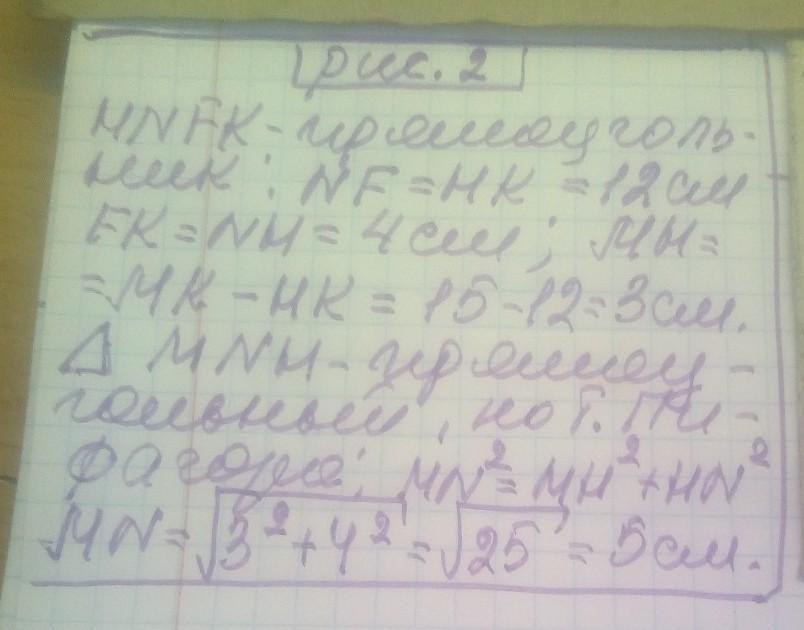 рис. 2
HNFK - прямоуголь-
ник: NF = HK = 12 см
FK = NH = 4 см; MH =
= MK - HK = 15 - 12 = 3 см.
Δ MNH - прямоу-
гольный, по т. Пи-
фагора: MN² = MH² + HN²
MN = √3² + 4² = √25 = 5 см.